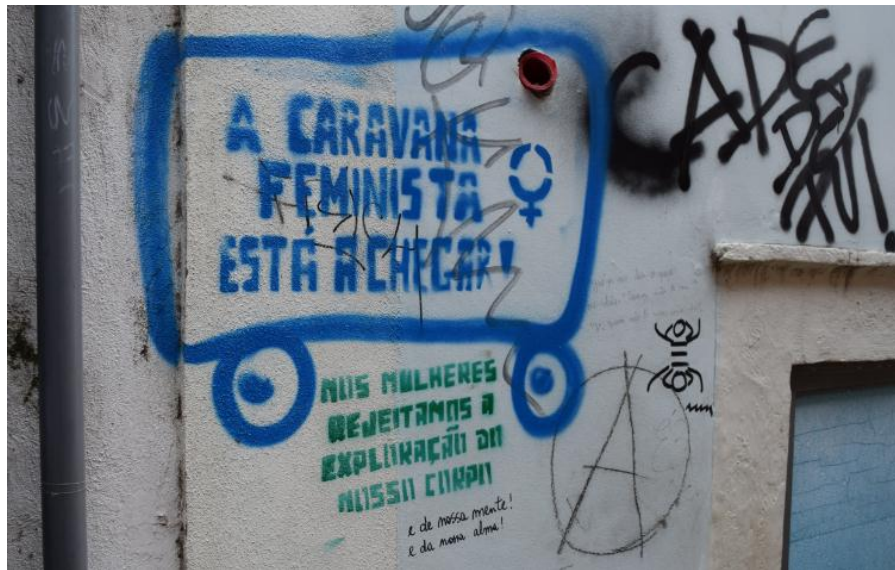 A CARAVANA
FEMINISTA
ESTÁ A CHEGAR!
CAPE
NOS MULHERES
REJEITAMOS A
EXPLORAÇÃO DO
NOSSO CORPO
e de nossa mente!
e da nossa alma!
A